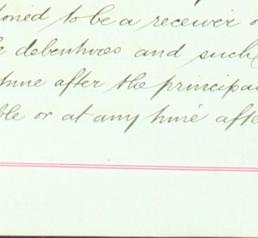 tioned to be a receiver o
e debentures and such
time after the principal
ble or at any time afte